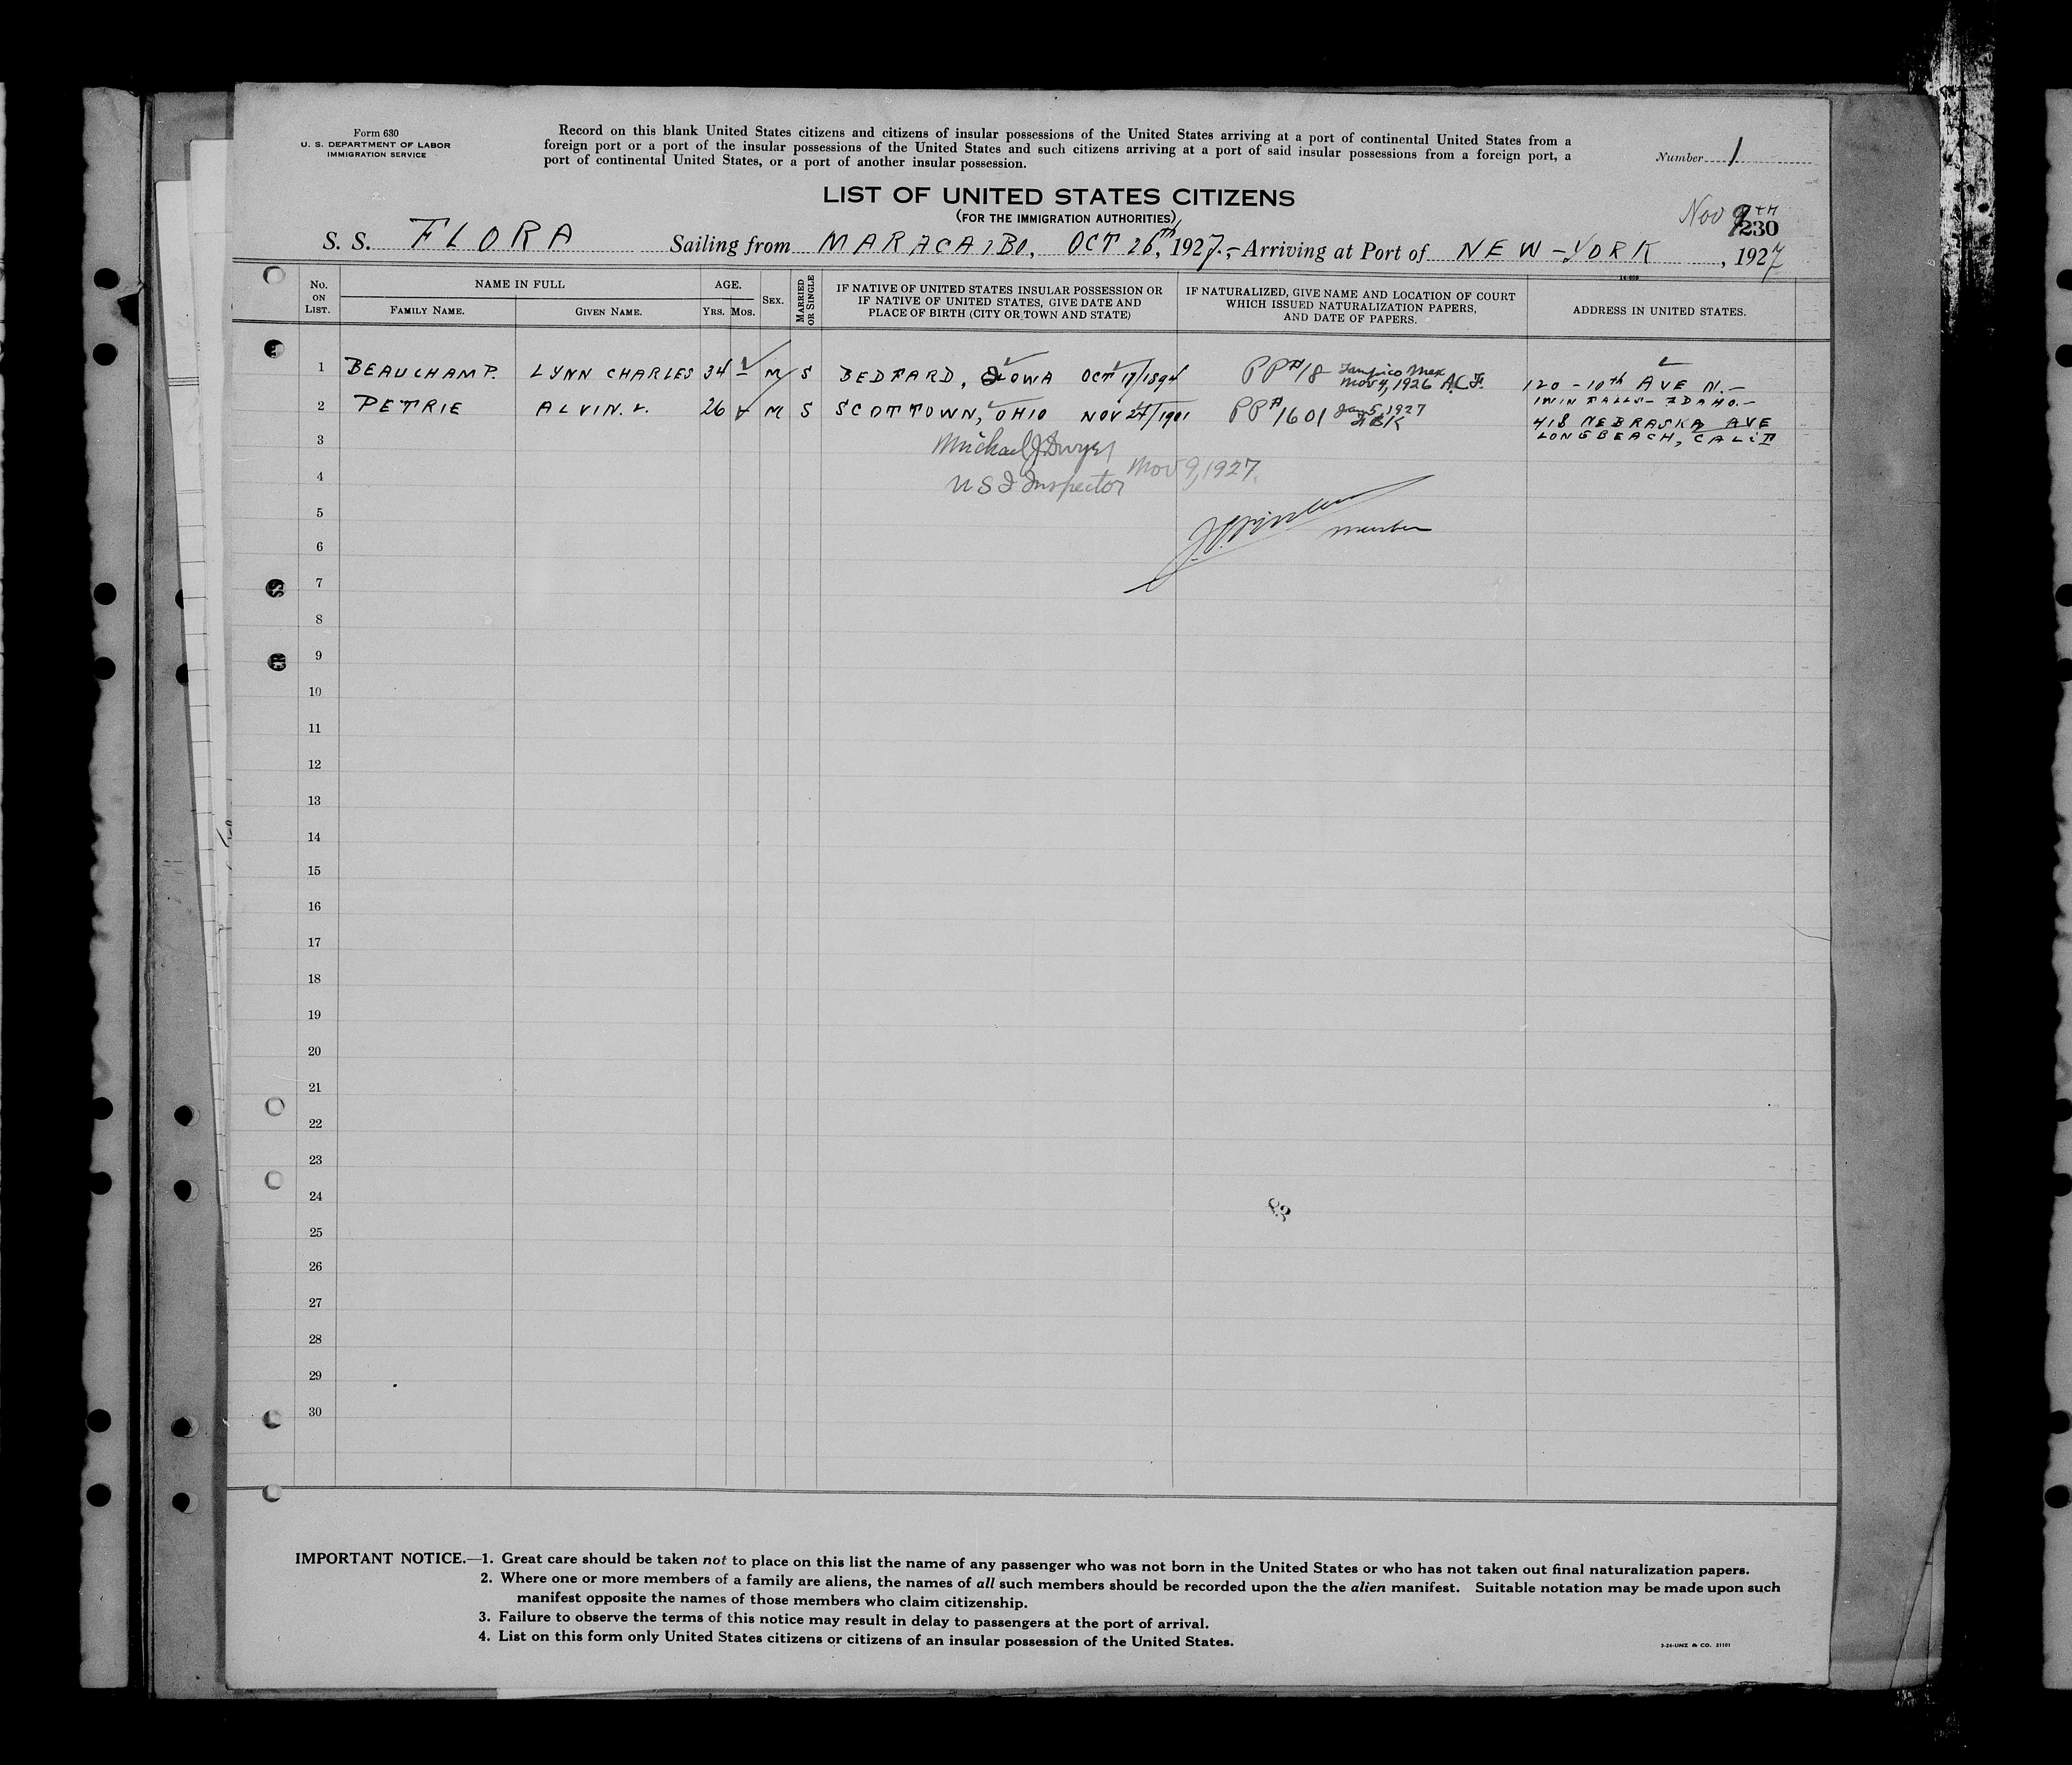 Form 630
U. S. DEPARTMENT OF LABOR
IMMIGRATION SERVICE
Record on this blank United States citizens and citizens of insular possessions of the United States arriving at a port of continental United States from a
foreign port or a port of the insular possessions of the United States and such citizens arriving at a port of said insular possessions from a foreign port, a
port of continental United States, or a port of another insular possession.
Number 1
LIST OF UNITED STATES CITIZENS
(FOR THE IMMIGRATION AUTHORITIES)
Nov 9TH
230
S. S. FLORA Sailing from MARACAIBO, OCT 26th, 1927.- Arriving at Port of NEW-YORK, 1927
No. ON LIST.
NAME IN FULL
FAMILY NAME.
GIVEN NAME.
AGE.
YRS. MOS.
SEX.
MARRIED OR SINGLE
IF NATIVE OF UNITED STATES INSULAR POSSESSION OR
IF NATIVE OF UNITED STATES, GIVE DATE AND
PLACE OF BIRTH (CITY OR TOWN AND STATE)
IF NATURALIZED, GIVE NAME AND LOCATION OF COURT
WHICH ISSUED NATURALIZATION PAPERS,
AND DATE OF PAPERS.
ADDRESS IN UNITED STATES.
1 BEAUCHAMP. LYNN CHARLES 34 M S BEDFARD, IOWA OCT 17/1894 PP#18 Tampico Mex
Nov 4, 1926 A.C.F.
120 - 10th AVE N.-
TWIN FALLS- IDAHO.-
2 PETRIE ALVIN. V. 26 M S SCOTTOWN, OHIO NOV 24/1901 PP#1601 Jan 5, 1927
418 NEBRASKA AVE
LONGBEACH, CALIF
3
Michael J Dwyer
4
U S I Inspector Nov 9, 1927.
5
6
7
8
9
10
11
12
13
14
15
16
17
18
19
20
21
22
23
24
25
26
27
28
29
30
IMPORTANT NOTICE.—1. Great care should be taken not to place on this list the name of any passenger who was not born in the United States or who has not taken out final naturalization papers.
2. Where one or more members of a family are aliens, the names of all such members should be recorded upon the the alien manifest. Suitable notation may be made upon such
manifest opposite the names of those members who claim citizenship.
3. Failure to observe the terms of this notice may result in delay to passengers at the port of arrival.
4. List on this form only United States citizens or citizens of an insular possession of the United States.
2-24-UNZ & CO. 21101